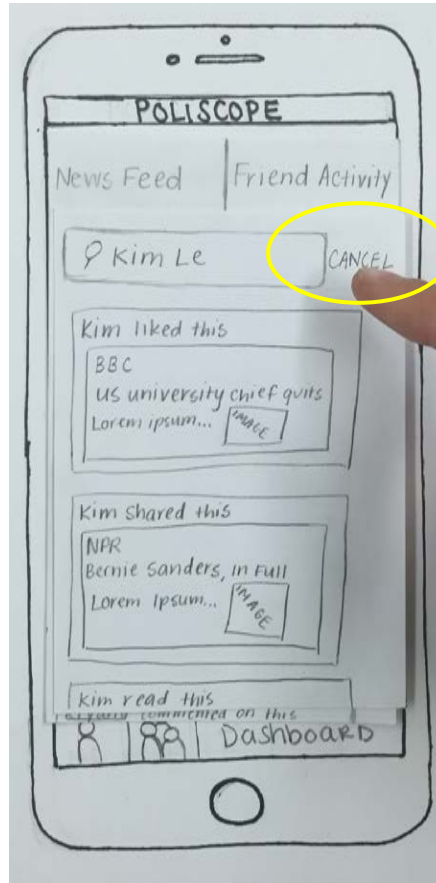 POLISCOPE
News Feed
Friend Activity
Kim Le
CANCEL
Kim liked this
BBC
US university chief quits
Lorem ipsum...
IMAGE
Kim shared this
NPR
Bernie Sanders, in Full
Lorem Ipsum...
IMAGE
Kim read this
commented on this
Dashboard